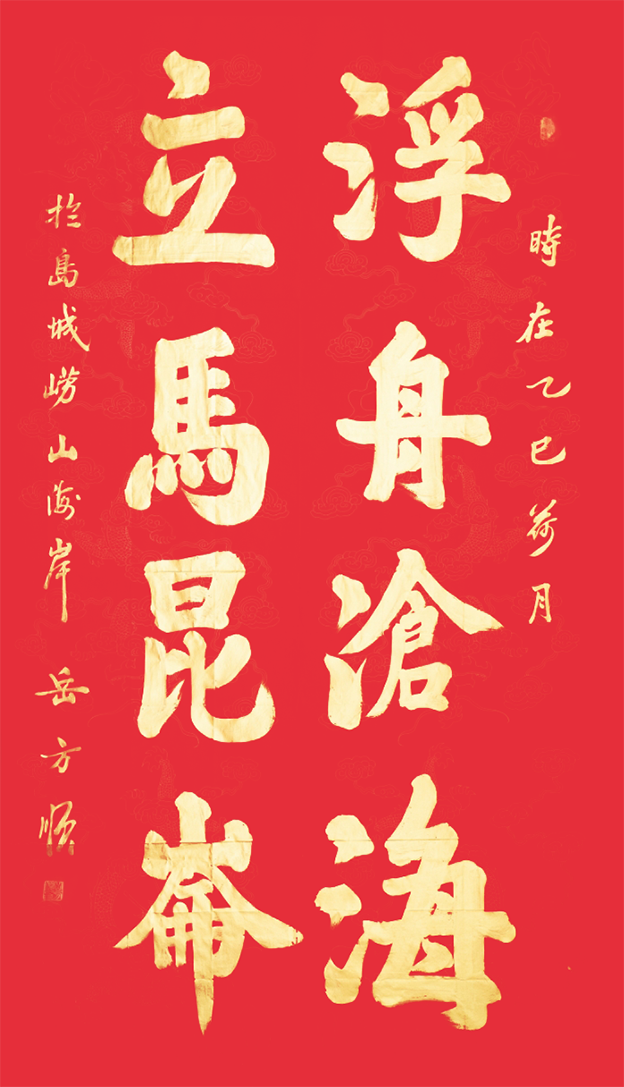 時在乙巳荷月
浮舟滄海
立馬昆崙
於島城崂山海岸 岳方順